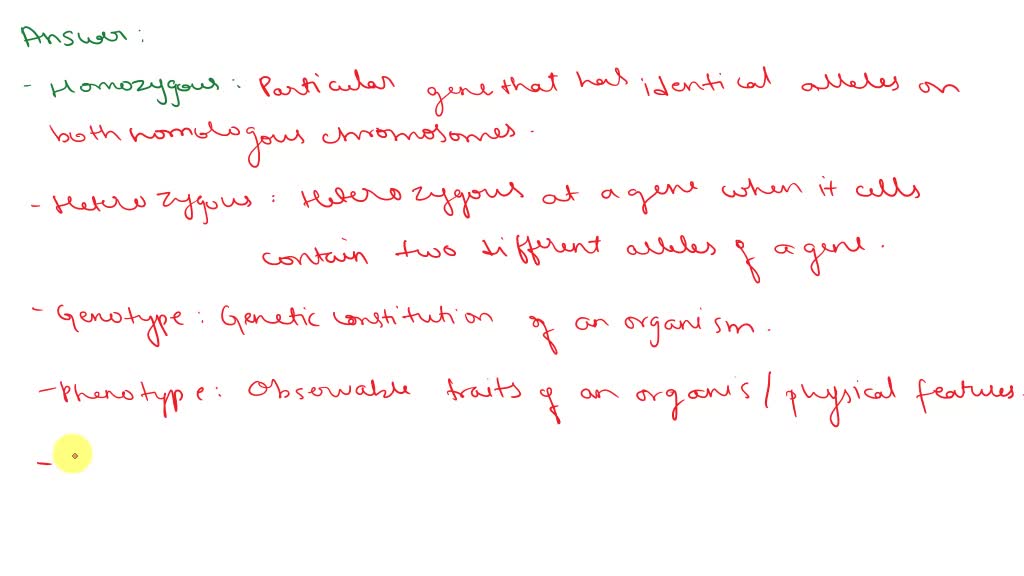 Answer:
- Homozygous: Particular gene that has identical alleles on
both homologous chromosomes.
- Heterozygous: Heterozygous at a gene when it cells
contain two different alleles of a gene.
- Genotype: Genetic constitution of an organism.
- Phenotype: Observable traits of an organis/physical features.
-